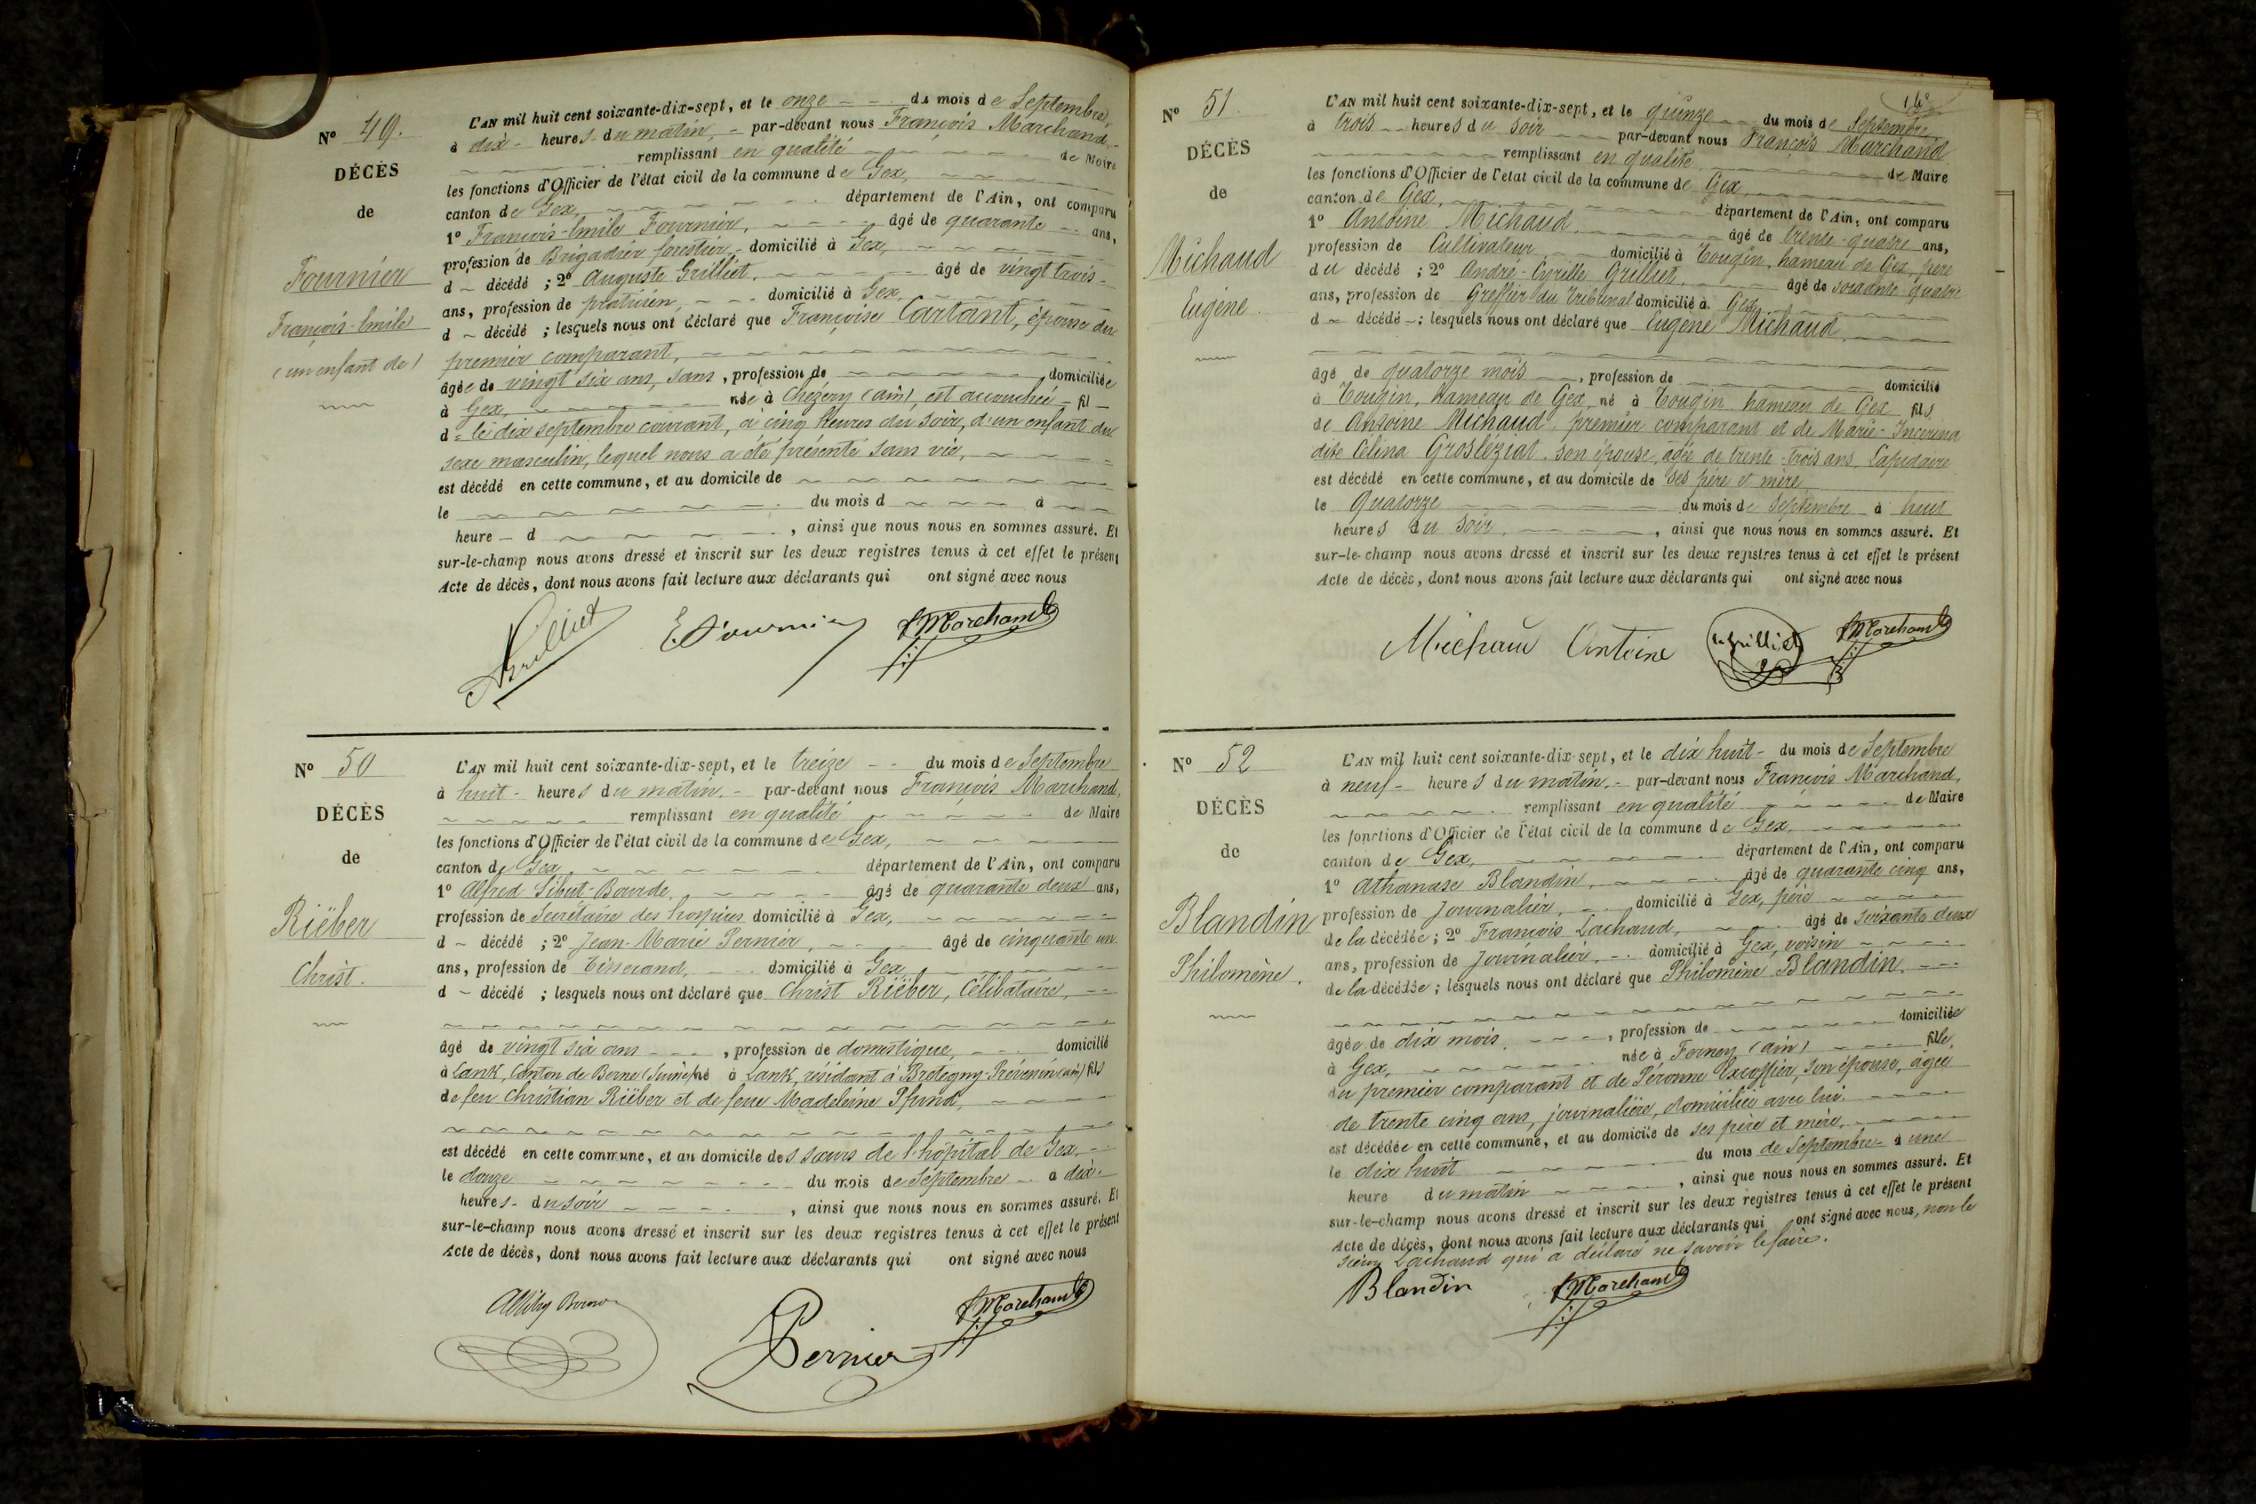 Nº 49.
DÉCÈS
de
Fournier
François-Emile
(un enfant de)
L'AN mil huit cent soixante-dix-sept, et le onze du mois de Septembre,
à dix heures du matin, par-devant nous François Marchand,
remplissant en qualité de Maire
les fonctions d'Officier de l'état civil de la commune de Gex,
canton de Gex, département de l'Ain, ont comparu
1º François-Emile Fournier, âgé de quarante ans,
profession de Brigadier forestier, domicilié à Gex,
d décédé ; 2º Auguste Grilliet, âgé de vingt trois
ans, profession de praticien, domicilié à Gex,
d décédé ; lesquels nous ont déclaré que Françoise Cartant, épouse du
premier comparant,
âgée de vingt six ans, sans, profession de domiciliée
à Gex, née à Chézery (ain), est accouchée fil
d le dix septembre courant, à cinq heures du soir, d'un enfant du
sexe masculin, lequel nous a été présenté sans vie,
est décédé en cette commune, et au domicile de
le du mois d à
heure d , ainsi que nous nous en sommes assuré. Et
sur-le-champ nous avons dressé et inscrit sur les deux registres tenus à cet effet le présent
Acte de décès, dont nous avons fait lecture aux déclarants qui ont signé avec nous
AGrilliet E. Fournier fMarchand
Nº 50
DÉCÈS
de
Riëber
Christ.
L'AN mil huit cent soixante-dix-sept, et le treize du mois de Septembre
à huit heures du matin. par-devant nous François Marchand,
remplissant en qualité de Maire
les fonctions d'Officier de l'état civil de la commune de Gex,
canton de Gex département de l'Ain, ont comparu
1º Alfred Sibut-Bourde, âgé de quarante deux ans,
profession de Secrétaire des hospices domicilié à Gex,
d décédé ; 2º Jean-Marie Pernier, âgé de cinquante un
ans, profession de Tisserand, domicilié à Gex
d décédé ; lesquels nous ont déclaré que Christ Riëber, Célibataire,
âgé de vingt six ans , profession de domestique, domicilié
à Lank, Canton de Berne (Suisse) né à Lank, résidant à Bretegny-Prévessin (ain) fils
de feu Christian Riëber et de feue Madeleine Pfund,
est décédé en cette commune, et au domicile des sœurs de l'hôpital de Gex,
le douze du mois de Septembre à dix
heures du soir , ainsi que nous nous en sommes assuré. Et
sur-le-champ nous avons dressé et inscrit sur les deux registres tenus à cet effet le présent
Acte de décès, dont nous avons fait lecture aux déclarants qui ont signé avec nous
Pernier fMarchand
Nº 51
DÉCÈS
de
Michaud
Eugène.
L'AN mil huit cent soixante-dix-sept, et le quinze du mois de Septembre
à trois heures du soir par-devant nous François Marchand
remplissant en qualité de Maire
les fonctions d'Officier de l'état civil de la commune de Gex
canton de Gex, département de l'Ain, ont comparu
1º Antoine Michaud. âgé de trente-quatre ans,
profession de Cultivateur domicilié à Tougin, hameau de Gex, père
du décédé ; 2º André-Cyrille Grilliet, âgé de soixante-quatre
ans, profession de Greffier du Tribunal domicilié à Gex
d décédé ; lesquels nous ont déclaré que Eugène Michaud
âgé de quatorze mois , profession de domicilié
à Tougin, hameau de Gex, né à Tougin hameau de Gex fils
de Antoine Michaud, premier comparant et de Marie-
dite Célina Grosléziat, son épouse, âgée de trente-trois ans, Lapidaire
est décédé en cette commune, et au domicile de ses père et mère
le quatorze du mois de Septembre à huit
heures du soir. , ainsi que nous nous en sommes assuré. Et
sur-le-champ nous avons dressé et inscrit sur les deux registres tenus à cet effet le présent
Acte de décès, dont nous avons fait lecture aux déclarants qui ont signé avec nous
Michaud Antoine Grilliet fMarchand
Nº 52
DÉCÈS
de
Blandin
Philomène.
L'AN mil huit cent soixante-dix-sept, et le dix huit du mois de Septembre
à neuf heures du matin. par-devant nous François Marchand,
remplissant en qualité de Maire
les fonctions d'Officier de l'état civil de la commune de Gex,
canton de Gex, département de l'Ain, ont comparu
1º Athanase Blandin, âgé de quarante cinq ans,
profession de Journalier, domicilié à Gex, père
de la décédée ; 2º François Lachaud, âgé de soixante deux
ans, profession de Journalier, domicilié à Gex, voisin
de la décédée ; lesquels nous ont déclaré que Philomène Blandin,
âgée de dix mois. , profession de domiciliée
à Gex, née à Ferney (ain) fille,
du premier comparant et de Péronne Excoffier, son épouse, âgée
de trente cinq ans, journalière, domiciliée avec lui.
est décédée en cette commune, et au domicile de ses père et mère,
le dix huit du mois de Septembre à une
heure du matin , ainsi que nous nous en sommes assuré. Et
sur-le-champ nous avons dressé et inscrit sur les deux registres tenus à cet effet le présent
Acte de décès, dont nous avons fait lecture aux déclarants qui ont signé avec nous, non le
sieur Lachaud qui a déclaré ne savoir le faire.
Blandin fMarchand